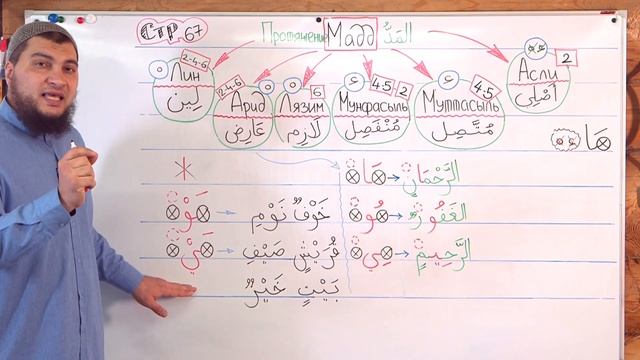 Стр 67
Протяжение Мадд اَلْمَدُّ
2-4-6 Лин لِين
2-4-6 Арид عَارِض
6 Лязим لَازِم
4-5 2 Мунфасыль مُنْفَصِل
4-5 Муттасыль مُتَّصِل
2 Асли أَصْلِي
مَا
مَا → الرَّحْمَانِ
مُو → الغَفُورُ
مِي → الرَّحِيمِ
مَوْ → خَوْفٌ نَوْمٍ
مَيْ → قُرَيْشٍ صَيْفِ
بَيْتٍ خَيْرٌ